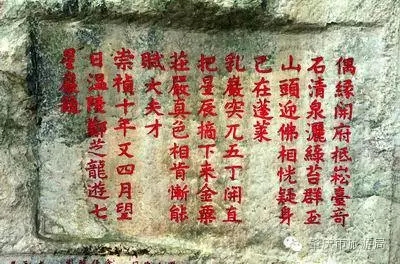 偶緣開府抵崧臺奇
石清泉灑綠苔群玉
山頭迎佛相恍疑身
已在蓬萊
乳巖突兀五丁開直
把星辰摘下來金粟
莊嚴真色相肯慚能
賦大夫才
崇禎十年又四月望
日温陵鄭芝龍遊七
星巖題
肇庆市旅游局